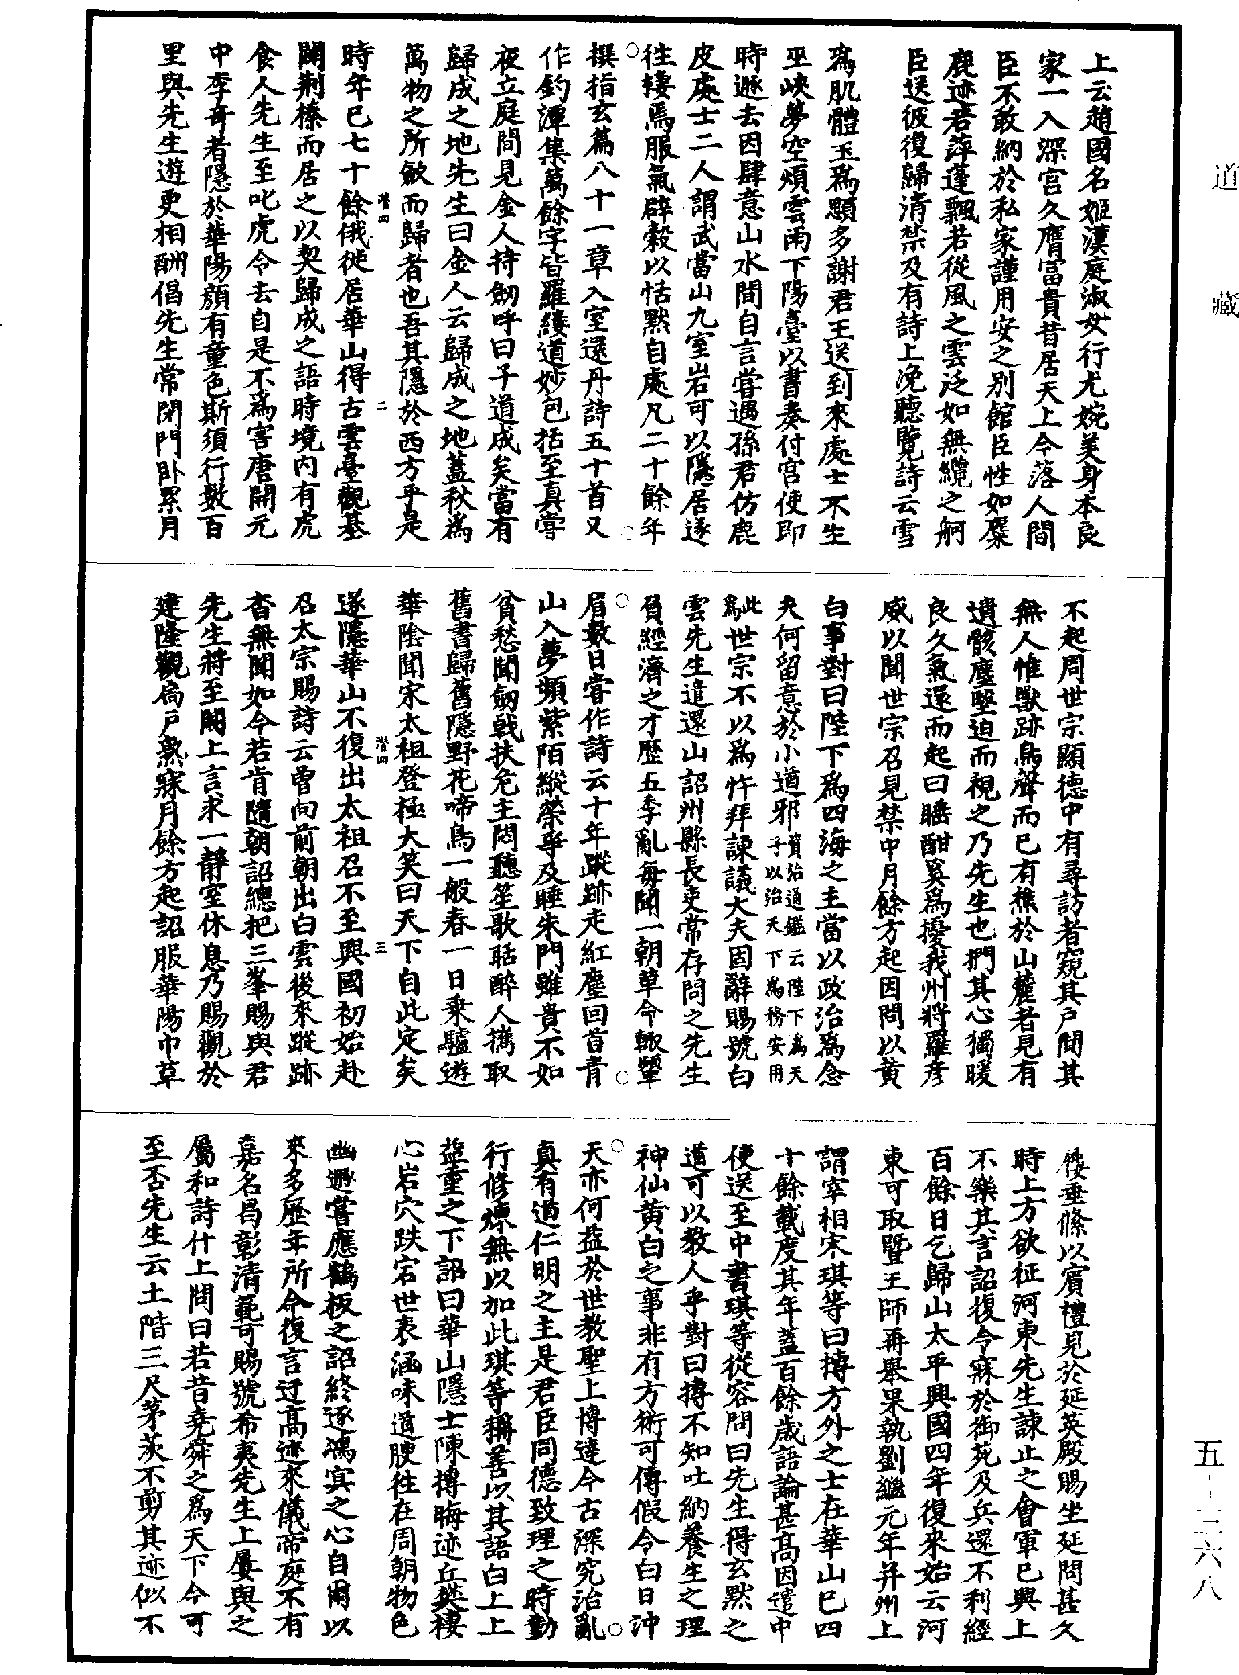 道藏
上云趙國名姬漢庭淑女行尤婉美身本良
家一入深宮久膺富貴昔居天上今落人間
臣不敢納於私家謹用安之別館臣性如麋
鹿迹若萍蓬飄若從風之雲泛如無纜之舸
臣送彼復歸清禁及有詩上浼聽覽詩云雪
為肌體玉為顋多謝君王送到來處士不生
巫峽夢空煩雲雨下陽臺以書奏付宮使即
時遯去因肆意山水間自言嘗遇孫君仿鹿
皮處士二人謂武當山九室岩可以隱居遂
往棲焉服氣辟穀以恬默自處凡二十餘年
撰指玄篇八十一章入室還丹詩五十首又
作釣潭集萬餘字皆羅縷道妙包括至真嘗
夜立庭間見金人持劒呼曰子道成矣當有
歸成之地先生曰金人云歸成之地蓋秋為
萬物之所歛而歸者也吾其隱於西方乎是
時年已七十餘俄徙居華山得古雲臺觀基
闢荆榛而居之以契歸成之語時境內有虎
食人先生至叱虎令去自是不為害唐開元
中李奇者隱於華陽顏有童色斯須行數百
里與先生遊更相酬倡先生常閉門卧累月
不起周世宗顯德中有尋訪者窺其戶間其
無人惟獸跡鳥聲而已有樵於山麓者見有
遺骸塵壅迫而視之乃先生也捫其心獨暖
良久氣還而起曰睡酣奚為擾我州將羅彥
威以聞世宗召見禁中月餘方起因問以黃
白事對曰陛下為四海之主當以政治為念
夫何留意於小道邪資治通鑑云陛下為天子以治天下為務安用
此為世宗不以為忤拜諫議大夫因辭賜號白
雲先生遣還山詔州縣長吏常存問之先生
負經濟之才歷五季亂每聞一朝革命輒顰
眉數日嘗作詩云十年蹤跡走紅塵回首青
山入夢頻紫陌縱榮爭及睡朱門雖貴不如
貧愁聞劒戟扶危主悶聽笙歌聒醉人攜取
舊書歸舊隱野花啼鳥一般春一日乘驢遊
華陰聞宋太祖登極大笑曰天下自此定矣
遂隱華山不復出太祖召不至興國初始赴
召太宗賜詩云曾向前朝出白雲後來蹤跡
杳無聞如今若肯隨朝詔總把三峯賜與君
先生將至闕上言求一靜室休息乃賜觀於
建隆觀扃戶熟寐月餘方起詔服華陽巾草
屨垂絛以賓禮見於延英殿賜坐延問甚久
時上方欲征河東先生諫止之會軍已興上
不樂其言詔復令寐於御苑及兵還不利經
百餘日乞歸山太平興國四年復來始云河
東可取暨王師再舉果執劉繼元年并州上
謂宰相宋琪等曰摶方外之士在華山已四
十餘載度其年蓋百餘歲語論甚高因遣中
使送至中書琪等從容問曰先生得玄默之
道可以教人乎對曰摶不知吐納養生之理
神仙黃白之事非有方術可傳假令白日沖
天亦何益於世教聖上博達今古深究治亂
真有道仁明之主是君臣同德致理之時勤
行修煉無以加此琪等稱善以其語白上上
益重之下詔曰華山隱士陳摶晦迹丘樊棲
心岩穴跌宕世表涵味道腴往在周朝物色
幽遯嘗應鶴板之詔終逐鴻賓之心自爾以
來多歷年所今復言迂高迹來儀帝庭不有
嘉名曷彰清範可賜號希夷先生上屢與之
屬和詩什上問曰若昔堯舜之為天下今可
至否先生云土階三尺茅茨不剪其迹似不
五-三六八